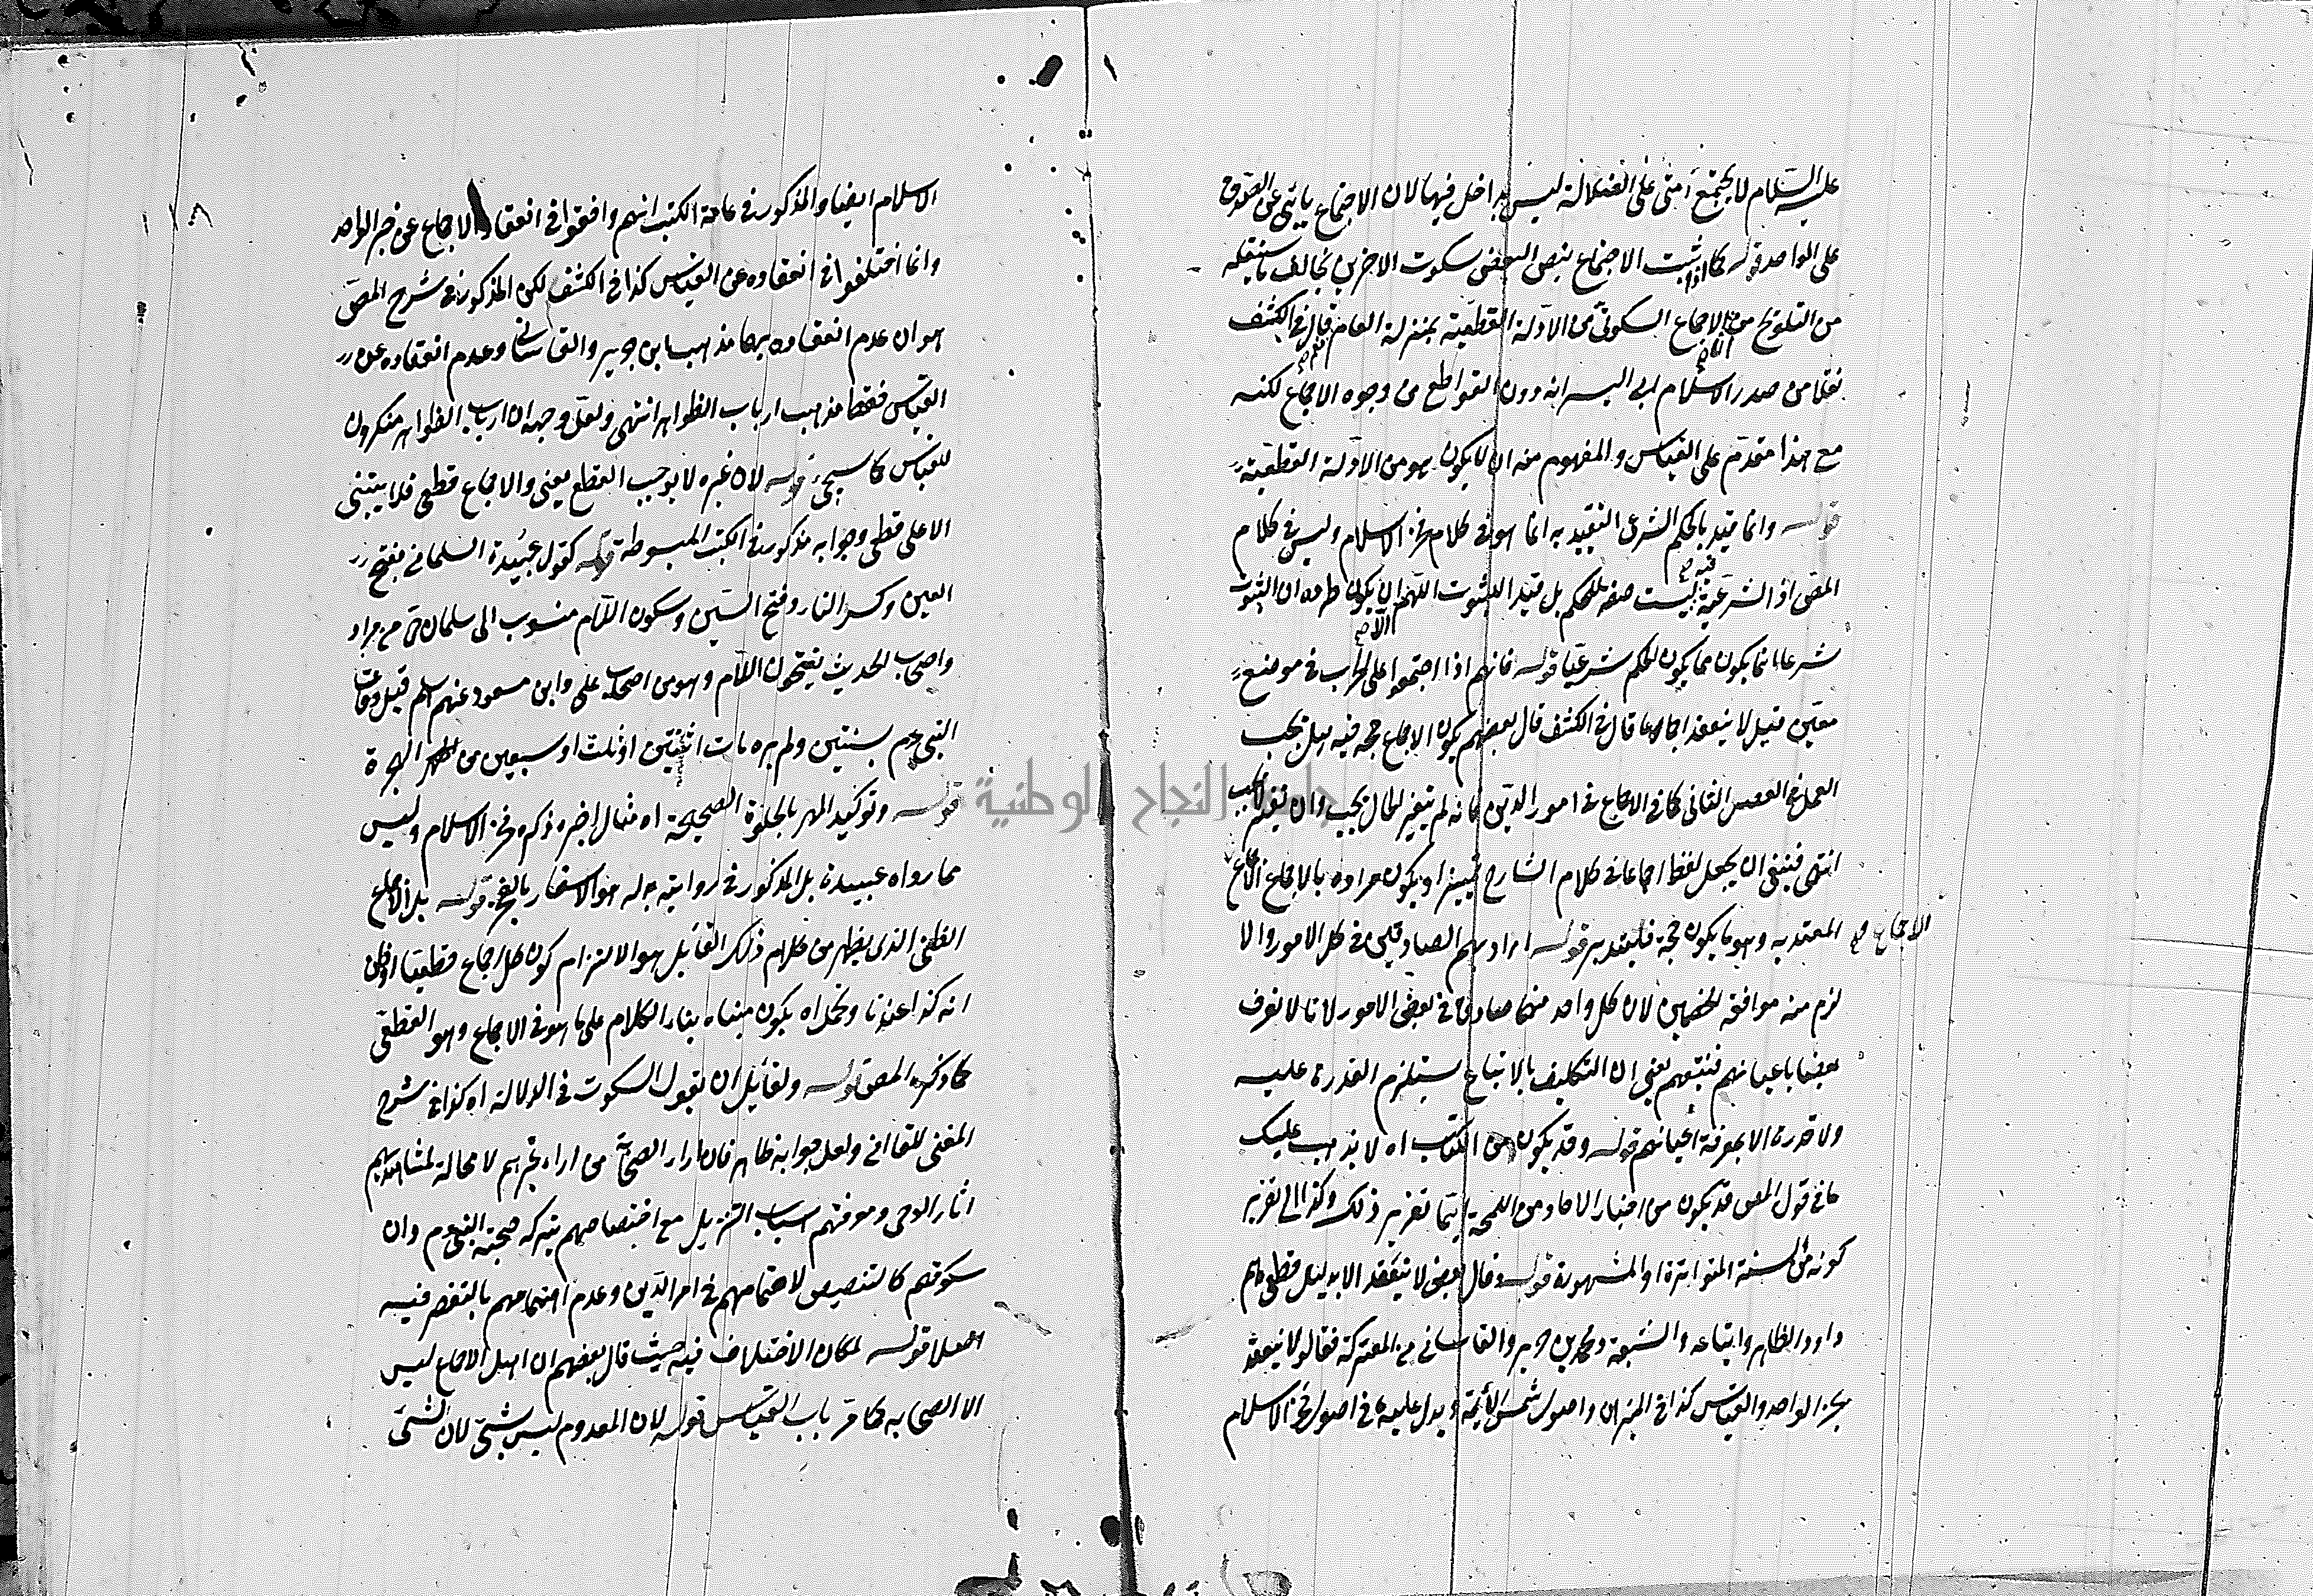 عليه السلام لا يجتمع أمتى على الضلالة ليس بداخل فيها لان الاجتماع يأتى عن الصدق
على الواحد قوله كما اذا ثبت الاجماع بنص البعض سكوت الاخرين يخالف ما سينقله
من التلويح من ان الاجماع السكوتى من الادلة القطعية بمنزلة العام قال فى الكشف
نقلا من صدر الاسلام ابى اليسر انه دون القواطع من وجوه الاجماع لكنه
مع هذا مقدم على القياس والمفهوم منه ان لا يكون هو من الادلة القطعية
قوله وانما قيد بالحكم الشرعى التقييد به انما هو فى كلام فخر الاسلام وليس فى كلام
المص اذ الشرعية ليست صفة للحكم بل قيد للثبوت اللهم الا ان يكون مراده ان الثبوت
شرعا انما يكون مما يكون الحكم شرعيا قوله فانهم اذا اجتمعوا على الحرب فى موضع
معين قيل لا ينعقد اجماعا قال فى الكشف قال بعضهم يكون الاجماع حجة فيه ايضا يجب
العمل فى العصر الثانى كما فى الاجماع فى امور الدين ما نه لم يتغير الحال يجب وان تغير لم يجب
انتهى فينبغى ان يجعل لفظ اجماعا فى كلام الشارح تمييزا ويكون مراده بالاجماع
المعتد به وهو ما يكون حجة فليتدبر قوله اراد بهم الصادقين فى كل الامور والا
الاجماع صح
لزم منه موافقة الخصمين لان كل واحد منهما صادق فى بعض الامور لانا لا نعرف
بعضا باعيانهم فنتبعهم يعنى ان التكليف بالاتباع يستلزم القدرة عليه
ولا قدرة الا بمعرفة اعيانهم قوله وقد يكون من الكتاب اه لا يذهب عليك
ما فى قول المص قد يكون من اخبار الاحاد من اللمحة انما تقرير ذلك وكذا الى تقرير
كونه من السنة المتواترة او المشهورة قوله وقال بعض لا ينعقد الا بدليل قطعى هم
داود الظاهر واتباعه والشيعة ومحمد بن جرير والقاسانى من المعتزلة فقالوا لا ينعقد
بخبر الواحد والقياس كذا فى الميزان واصول شمس الأئمة ويدل عليه ما فى اصول فخر الاسلام
الاسلام ايضا والمذكور فى عامة الكتب انهم وافقوا فى انعقاد الاجماع عن خبر الواحد
وانما اختلفوا فى انعقاده عن القياس كذا فى الكشف لكن المذكور فى شرح المص
هو ان عدم انعقاده بهما مذهب ابن جرير والقاسانى وعدم انعقاده عن
القياس فقط مذهب ارباب الظواهر انتهى ولعل وجهه ان ارباب الظواهر منكرون
للقياس كما سيجئ قوله لان غيره لا يوجب القطع يعنى والاجماع قطعى فلا يبتنى
الا على قطعى وجوابه مذكور فى الكتب المبسوطة قوله كقول عبيدة السلمانى بفتح
العين وكسر الباء وفتح السين وسكون اللام منسوب الى سلمان حى من مراد
واصحاب الحديث يفتحون اللام وهو من اصحاب على وابن مسعود عنهم اسلم قبل وفات
النبى عم بسنتين ولم يره مات اثنتين او ثلث او سبعين من الهجرة
قوله وتوكيد المهر بالخلوة الصحيحة اه مثال اخره ذكره فخر الاسلام وليس
مما رواه عبيدة بل المذكور فى روايته بدله هو الاسفار بالفجر قوله بل الاجماع
الظنى الذى يظهر من كلام ذلك القائل هو الالتزام كون كل اجماع قطعيا
انه كذا عندنا ومحله ان يكون مبناه بناء الكلام على ما هو فى الاجماع وهو القطعى
كما ذكره المص قوله ولقائل ان يقول السكوت فى الدلالة اه كذا فى شرح
المغنى للقاآنى ولعل جوابه ظاهر فان اراء الصحابة من اراء غيرهم لا محالة لمشاهدتهم
اثار الوحى ومعرفتهم اسباب التنزيل مع اختصاصهم ببركة صحبة النبى عم وان
سكوتهم كالتنصيص لاهتمامهم فى امر الدين وعدم اتهامهم بالتقصير فيه
اصلا قوله لمكان الاختلاف فيه حيث قال بعضهم ان اهل الاجماع ليس
الا الصحابه كما مر باب القياس قوله لان المعدوم ليس بشئ لان الشئ